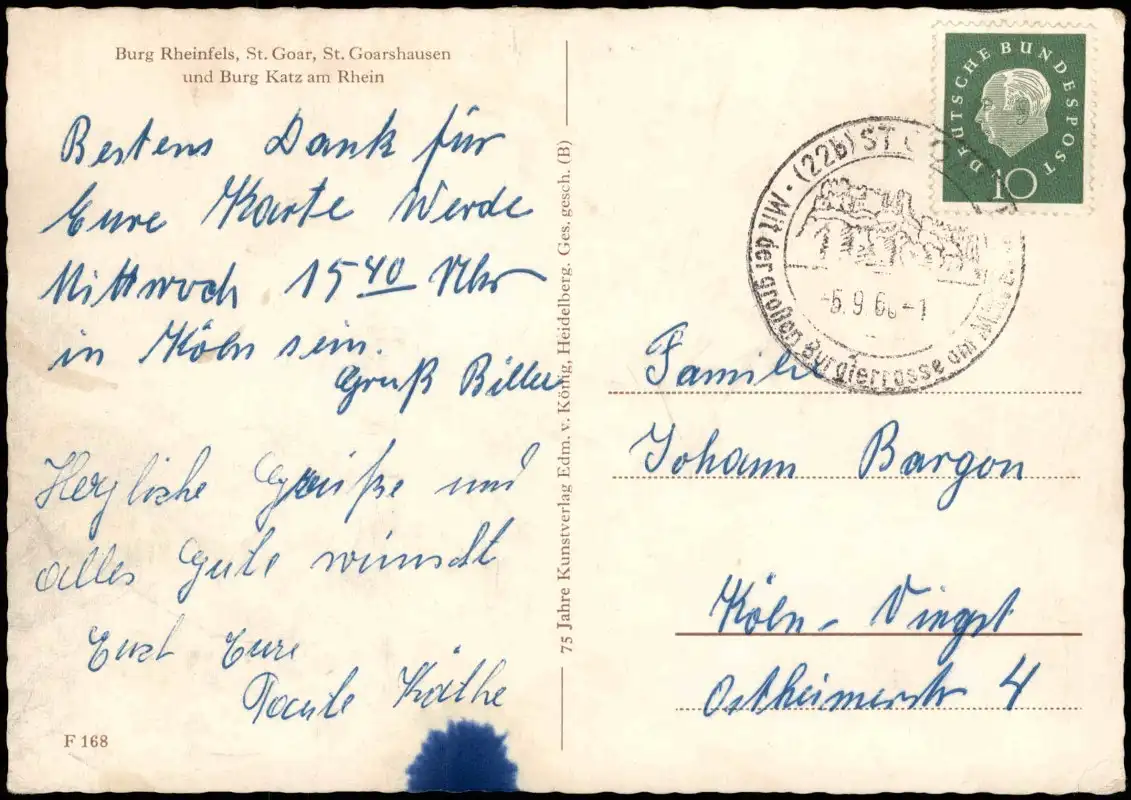 Burg Rheinfels, St. Goar, St. Goarshausen
und Burg Katz am Rhein
Bestens Dank für
Eure Karte Werde
Mittwoch 15 40 Uhr
in Köln sein.
Gruß Biller
Herzliche Grüße und
alles Gute wünscht
Euch Eure
Tante Käthe
F 168
75 Jahre Kunstverlag Edm. v. König, Heidelberg. Ges. gesch. (B)
DEUTSCHE BUNDESPOST
10
(22b) ST.
Mit der großen Burgterrasse am
-5.9.6
-1
Familie
Johann Bargon
Köln - Vingst
Ostheimerstr 4